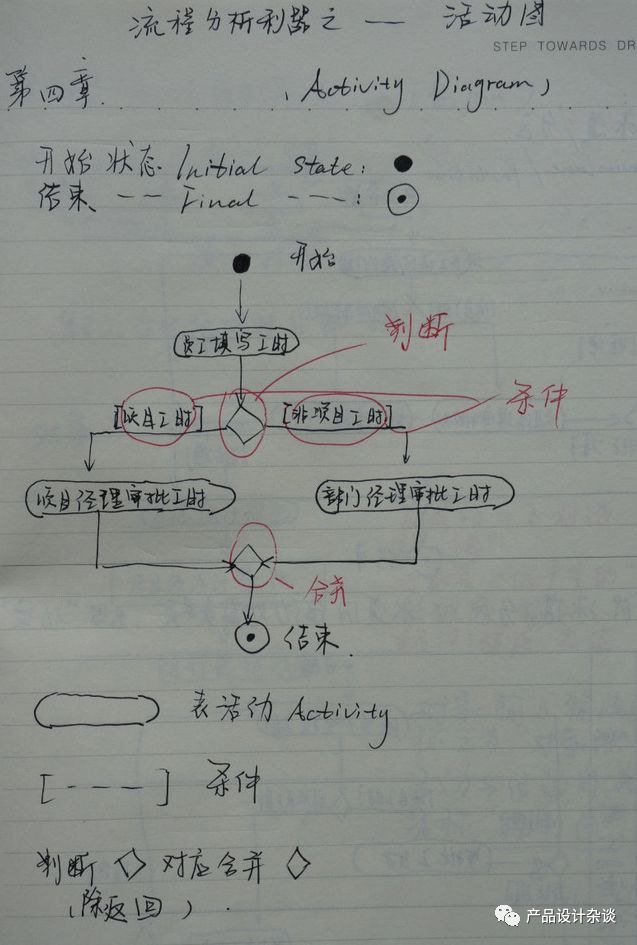 流程分析利器之 — 活动图
STEP TOWARDS DR
第四章 (Activity Diagram)
开始状态 Initial State:
结束 -- Final ---:
开始
员工填写工时
判断
[项目工时] [非项目工时]
条件
项目经理审批工时 部门经理审批工时
合并
结束
表活动 Activity
[---] 条件
判断 ◇ 对应合并 ◇
(除返回).
产品设计杂谈